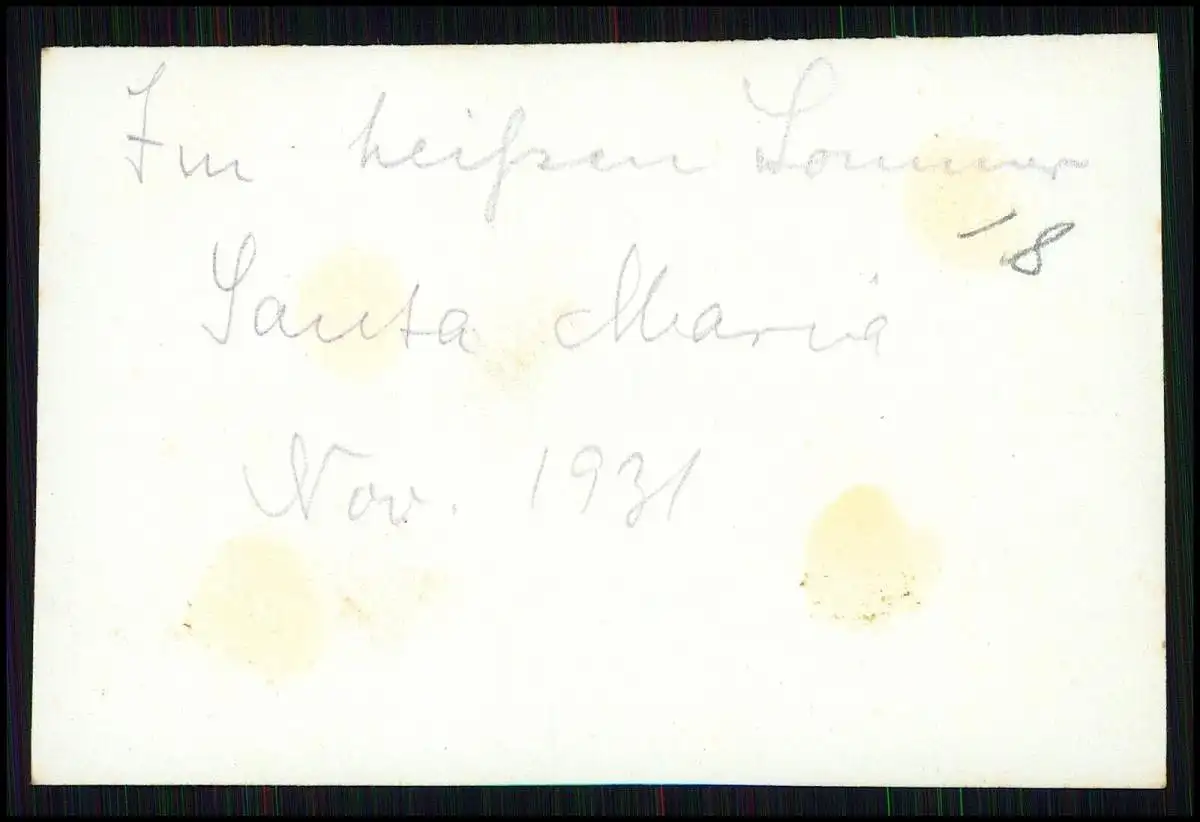 Im heißen Sommer
18
Santa Maria
Nov. 1931